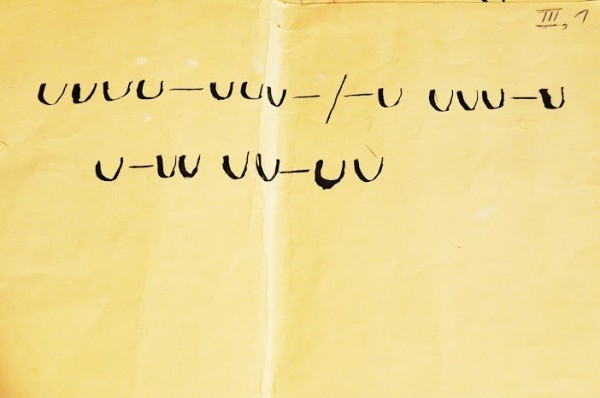 III, 1
∪∪∪∪–∪∪∪–/–∪ ∪∪∪–∪
∪–∪∪ ∪∪–∪∪